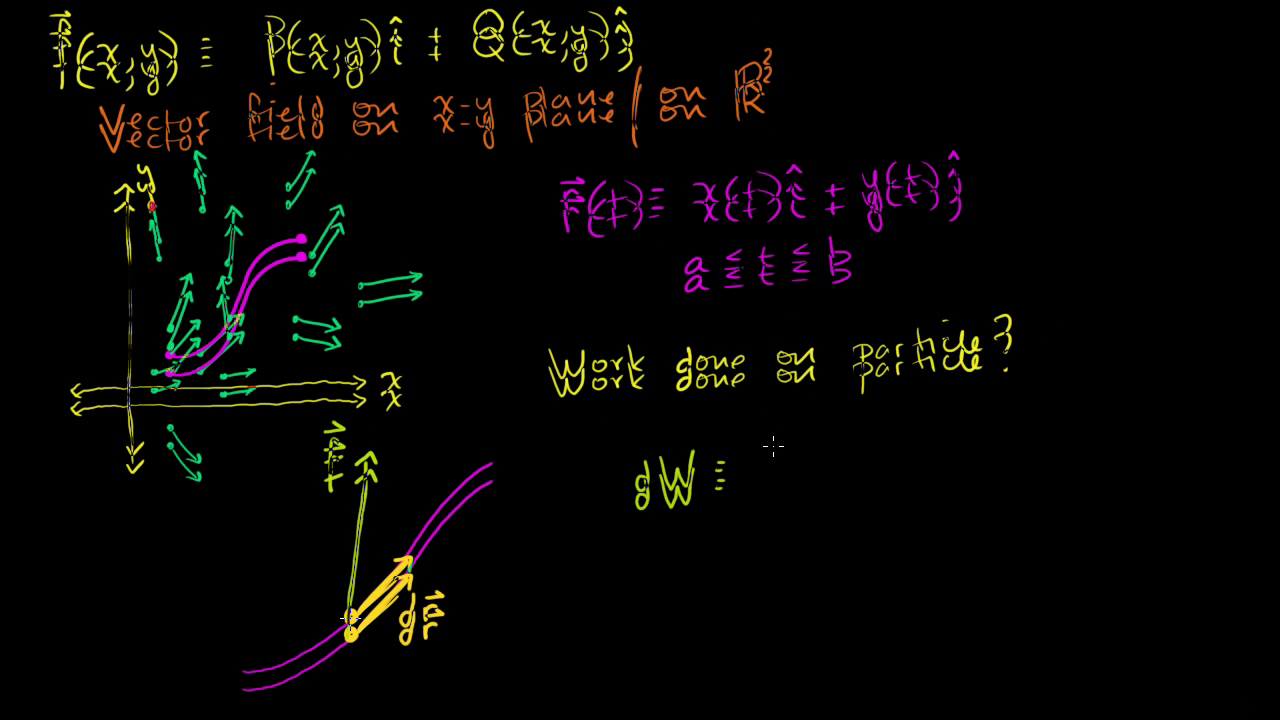 f⃗(x,y) = P(x,y)î + Q(x,y)ĵ
Vector field on x-y plane / on ℝ²
y
r⃗(t) = x(t)î + y(t)ĵ
a ≤ t ≤ b
Work done on particle?
x
f⃗
dW =
dr⃗